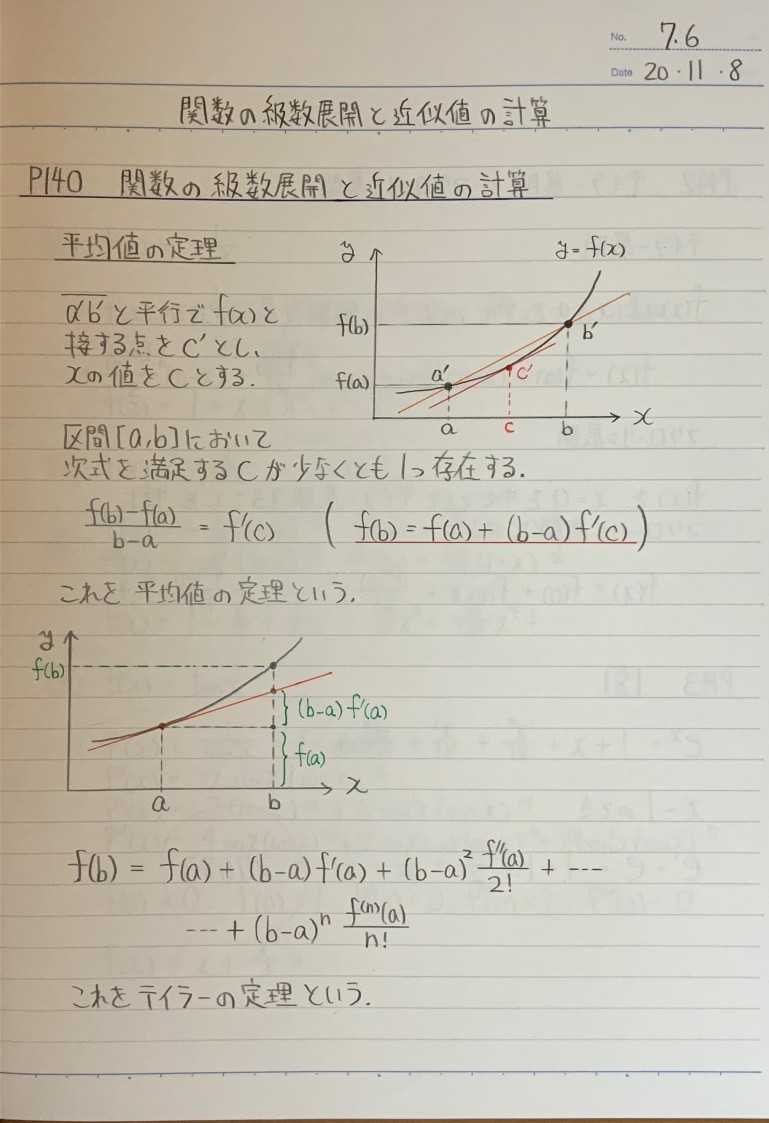 No. 7.6
Date 20・11・8
関数の級数展開と近似値の計算
P140 関数の級数展開と近似値の計算
平均値の定理
a'b'と平行でf(x)と
接する点をC'とし、
xの値をCとする.
y
y=f(x)
f(b)
b'
f(a)
a'
c'
x
a
c
b
区間[a,b]において
次式を満足するCが少なくとも1つ存在する.
f(b)-f(a) / b-a = f'(c) ( f(b)=f(a)+(b-a)f'(c) )
これを平均値の定理という.
y
f(b)
(b-a)f'(a)
f(a)
x
a
b
f(b) = f(a) + (b-a)f'(a) + (b-a)² f''(a)/2! + ---
--- + (b-a)ⁿ f⁽ⁿ⁾(a)/n!
これをテイラーの定理という.